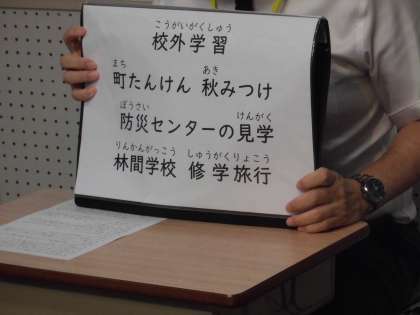 こうがいがくしゅう
校外学習
まち あき
町たんけん 秋みつけ
ぼうさい けんがく
防災センターの見学
りんかんがっこう しゅうがくりょこう
林間学校 修学旅行